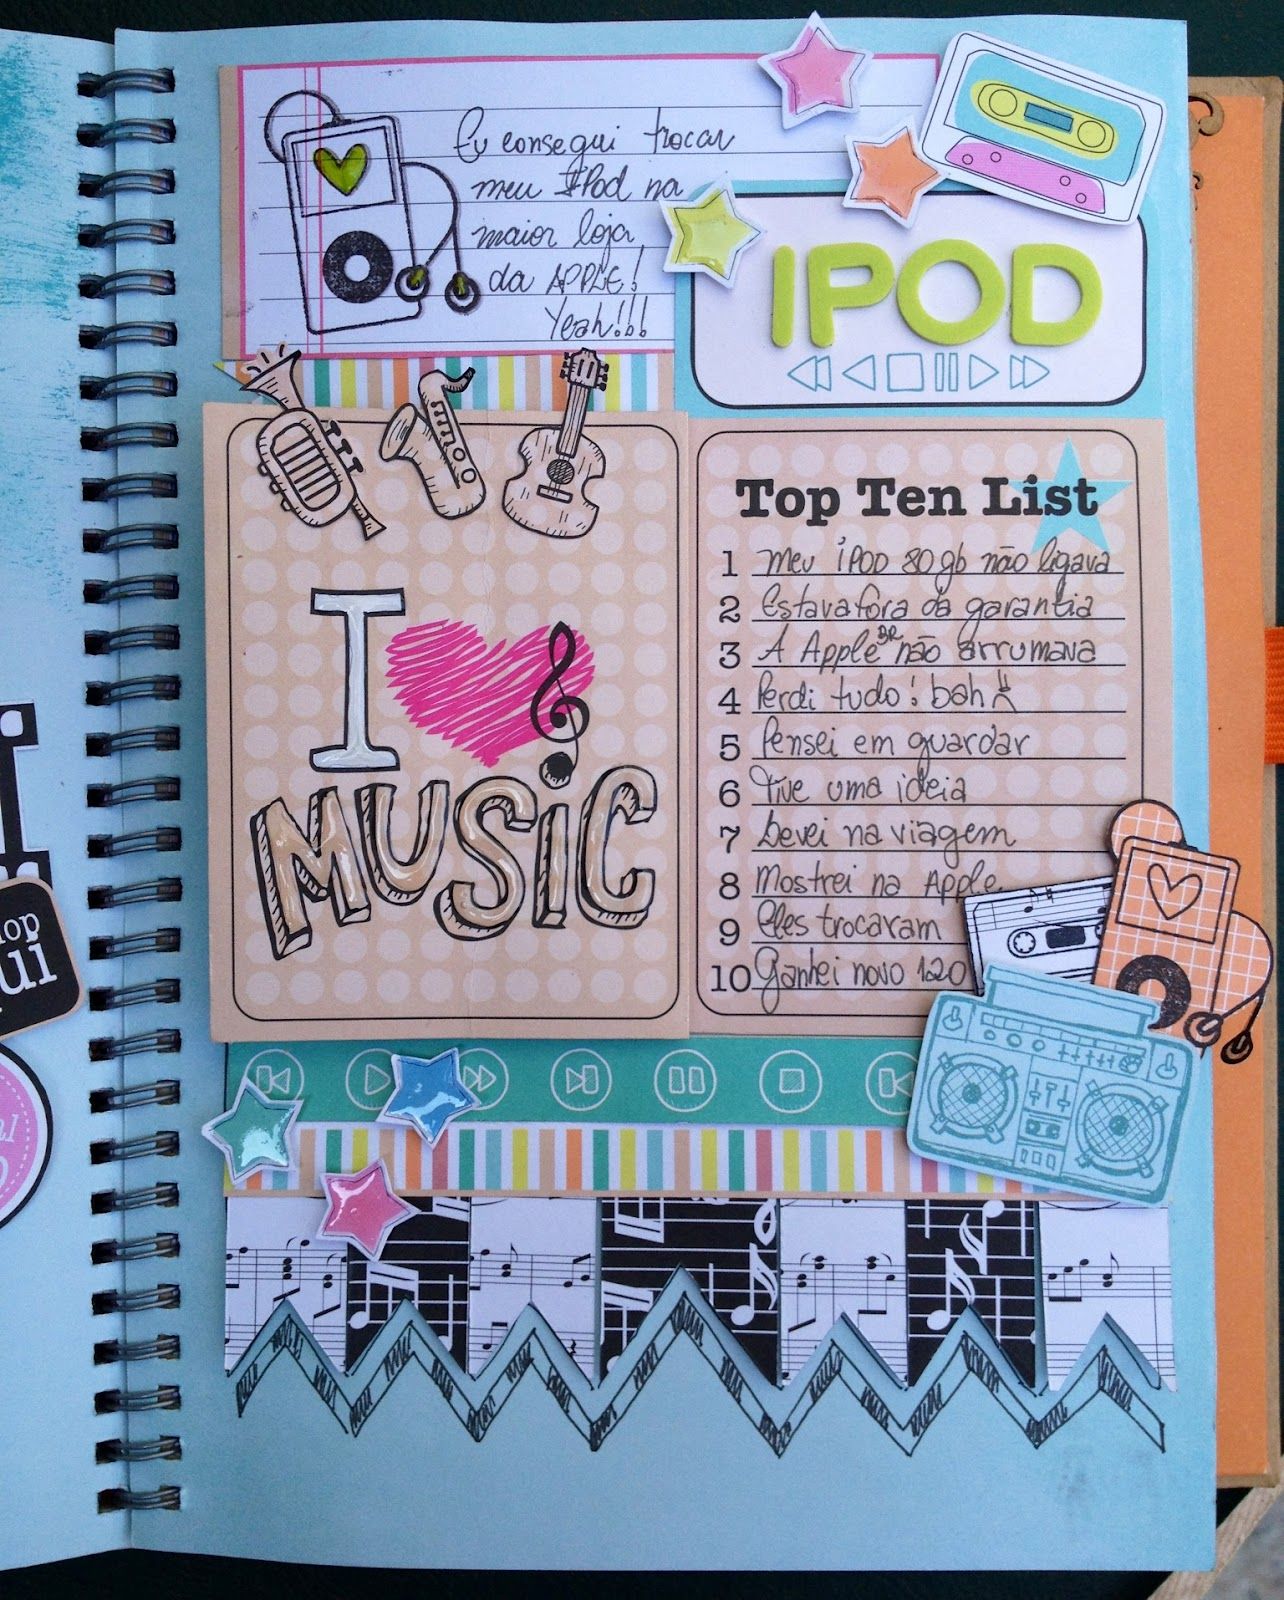 Eu consegui trocar
meu IPod na
maior loja
da APPLE!
Yeah!!!
IPOD
I
MUSiC
Top Ten List
1 Meu iPOD 80gb não ligava
2 Estava fora da garantia
3 A Apple BR não arrumava
4 Perdi tudo! bah
5 Pensei em guardar
6 Tive uma ideia
7 Levei na viagem
8 Mostrei na Apple
9 Eles trocaram
10 Ganhei novo 120
op
ui
al